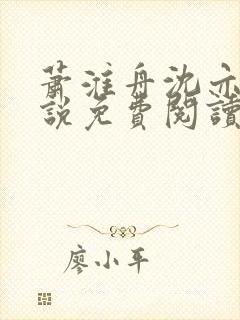 蕭淮舟沈亦
說免費閱讀
廖小平